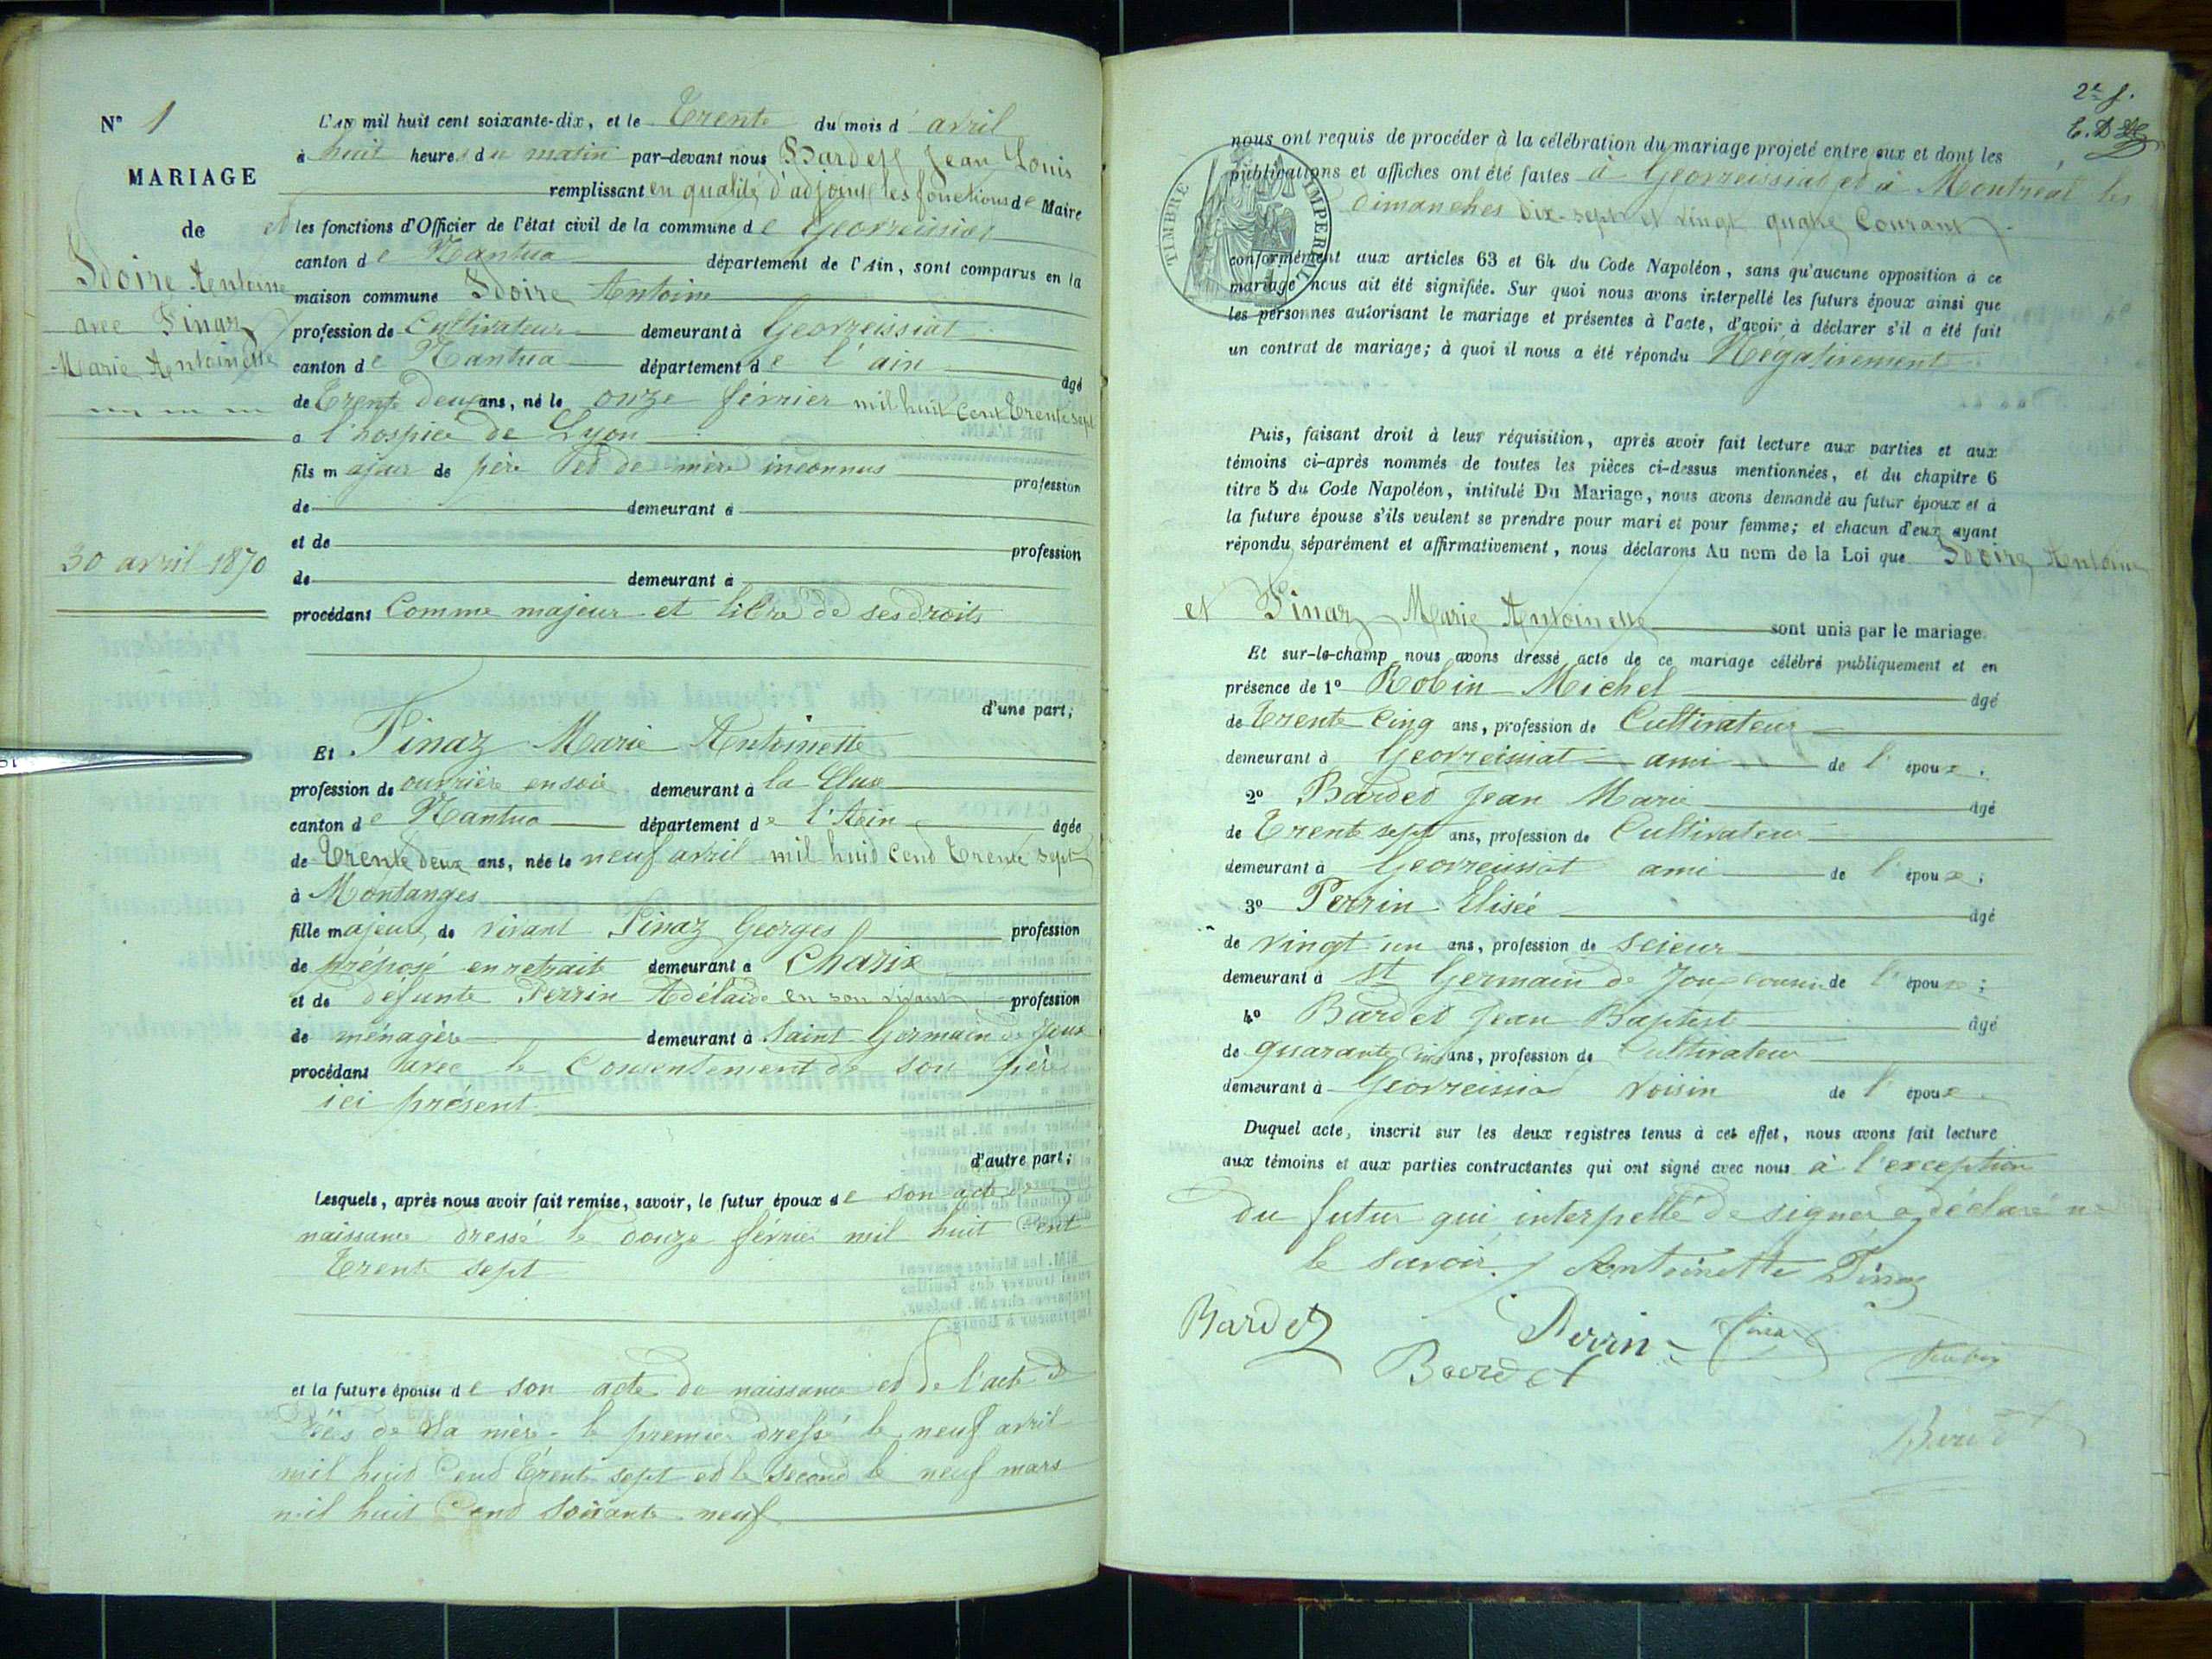 N° 1
MARIAGE
de
Idoire Antoine
avec Pinaz
Marie Antoinette
30 avril 1870
L'an mil huit cent soixante-dix, et le Trente du mois d' avril
à huit heures du matin par-devant nous Bardet Jean Louis
remplissant en qualité d'adjoint les fonctions de Maire
et les fonctions d'Officier de l'état civil de la commune de Géovreissiat
canton de Nantua département de l'Ain, sont comparus en la
maison commune Idoire Antoine
profession de Cultivateur demeurant à Géovreissiat
canton de Nantua département de l'ain âgé
de Trente deux ans, né le onze février mil huit Cent Trente sept
a l'hospice de Lyon
fils majeur de père et de mère inconnus profession
de demeurant à
et de profession
de demeurant à
procédant Comme majeur et libre de ses droits
d'une part;
Et Pinaz Marie Antoinette
profession de ouvrière en soie demeurant à la Cluse
canton de Nantua département de l'Ain âgée
de Trente deux ans, née le neuf avril mil huit cend Trente sept
à Montanges
fille majeure de vivant Pinaz Georges profession
de préposé en retraite demeurant a Charix
et de défunte Perrin Adélaïde en son vivant profession
de ménagère demeurant à Saint Germain de Joux
procédant avec le Consentement de son père
ici présent
d'autre part;
Lesquels, après nous avoir fait remise, savoir, le futur époux de son acte de
naissance dressé le douze février mil huit Cent
Trente sept
et la future épouse de son acte de naissance et de l'acte de
décès de sa mère - le premier dressé le neuf avril
mil huit Cend Trente sept et le second le neuf mars
mil huit Cend soixante neuf
2e f.
TIMBRE IMPERIAL
nous ont requis de procéder à la célébration du mariage projeté entre eux et dont les
publications et affiches ont été faites à Géovreissiat et à Montréal les
dimanches dix-sept et vingt quatre Courant
conformément aux articles 63 et 64 du Code Napoléon, sans qu'aucune opposition à ce
mariage nous ait été signifiée. Sur quoi nous avons interpellé les futurs époux ainsi que
les personnes autorisant le mariage et présentes à l'acte, d'avoir à déclarer s'il a été fait
un contrat de mariage; à quoi il nous a été répondu Négativement
Puis, faisant droit à leur réquisition, après avoir fait lecture aux parties et aux
témoins ci-après nommés de toutes les pièces ci-dessus mentionnées, et du chapitre 6
titre 5 du Code Napoléon, intitulé Du Mariage, nous avons demandé au futur époux et à
la future épouse s'ils veulent se prendre pour mari et pour femme; et chacun d'eux ayant
répondu séparément et affirmativement, nous déclarons Au nom de la Loi que Idoire Antoine
et Pinaz Marie Antoinette sont unis par le mariage.
Et sur-le-champ nous avons dressé acte de ce mariage célébré publiquement et en
présence de 1° Robin Michel âgé
de Trente Cinq ans, profession de Cultivateur
demeurant à Géovreissiat ami de l'époux.
2° Bardet Jean Marie âgé
de Trente sept ans, profession de Cultivateur
demeurant à Géovreissiat ami de l'époux;
3° Perrin Elisée âgé
de vingt un ans, profession de scieur
demeurant à St Germain de Joux cousin de l'épouse;
4° Bardet Jean Baptist âgé
de quarante Cinq ans, profession de Cultivateur
demeurant à Géovreissiat voisin de l'époux.
Duquel acte, inscrit sur les deux registres tenus à cet effet, nous avons fait lecture
aux témoins et aux parties contractantes qui ont signé avec nous à l'exception
du futur qui interpellé de signer a déclaré ne
le savoir. Antoinette Pinaz
Bardet Perrin Pinaz Robin
Bardet
Bardet